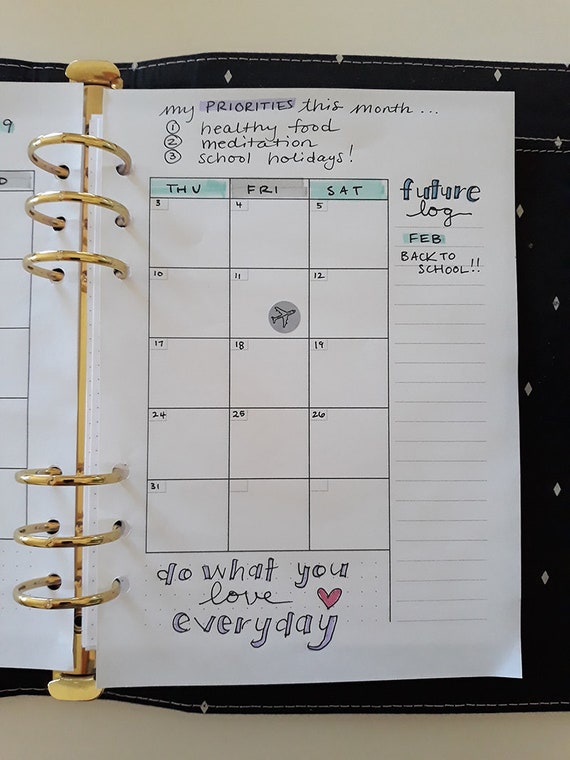 9
D
my PRIORITIES this month...
① healthy food
② meditation
③ school holidays!
THU FRI SAT
3 4 5
10 11 12
17 18 19
24 25 26
31
future
log
FEB
BACK TO
SCHOOL!!
do what you
love
everyday